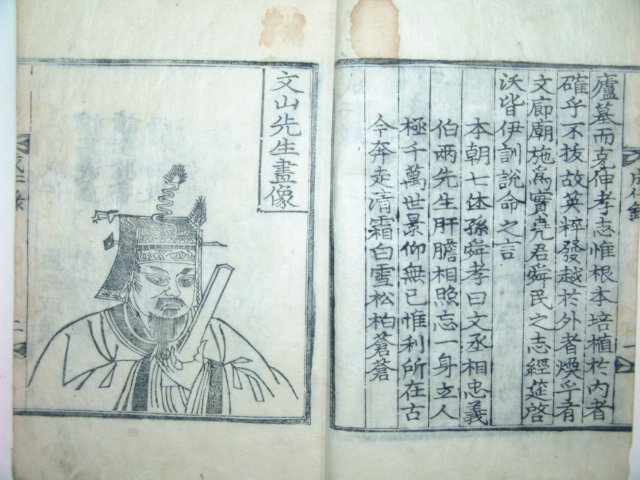 廬墓而克伸孝志惟根本培植於内者
確乎不拔故英粹發越於外者煥乎有
文廊廟施爲實堯君舜民之志經筵啓
沃皆伊訓說命之言
本朝七休孫舜孝曰文丞相忠義
伯兩先生肝膽相照忘一身立人
極千萬世景仰無已惟利所在古
今奔走清霜白雪松柏蒼蒼
文山先生畫像